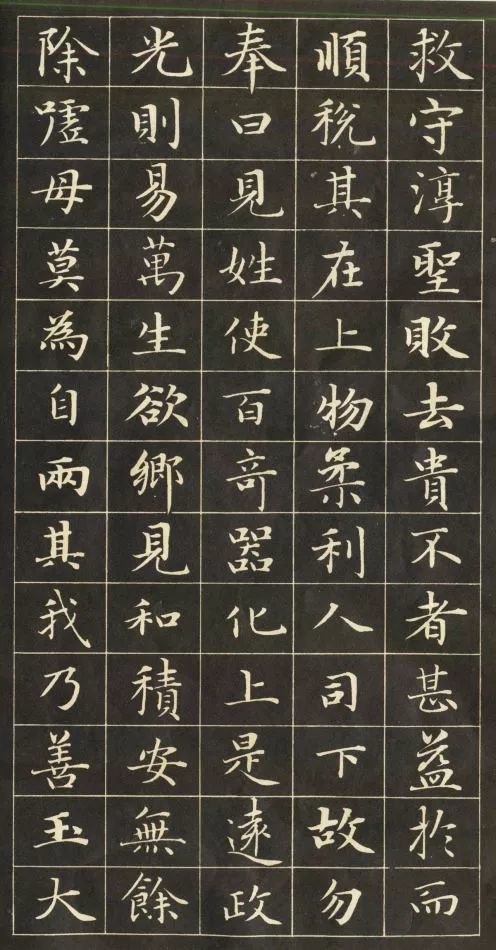 救守淳聖敗去貴不者甚益於而
順稅其在上物柔利人司下故勿
奉曰見姓使百奇器化上是遠政
光則易萬生欲鄉見和積安無餘
除噓母莫為自兩其我乃善玉大